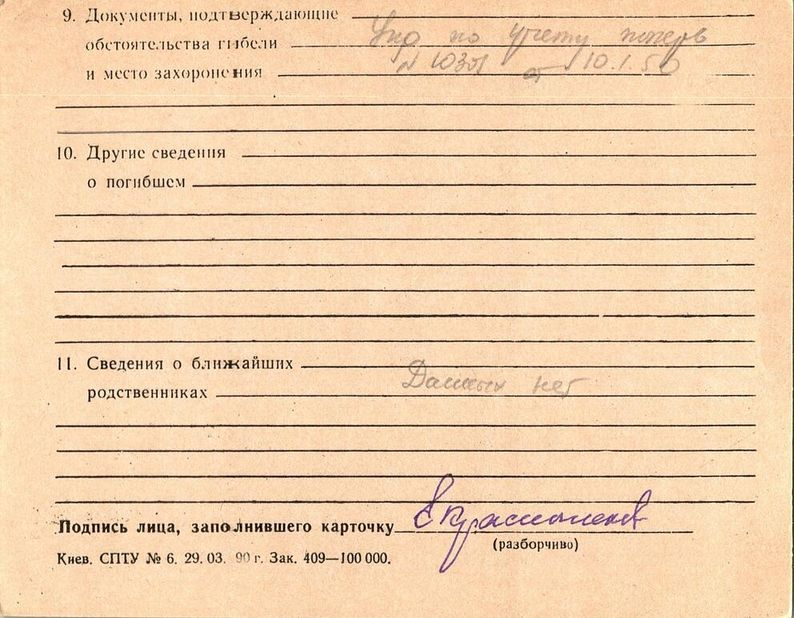 9. Документы, подтверждающие
обстоятельства гибели Упр по учету потерь
и место захоронения N 10301 от 10.1.50
10. Другие сведения
о погибшем
11. Сведения о ближайших
родственниках Данных нет
Подпись лица, заполнившего карточку
(разборчиво)
Киев. СПТУ № 6. 29. 03. 90 г. Зак. 409—100 000.